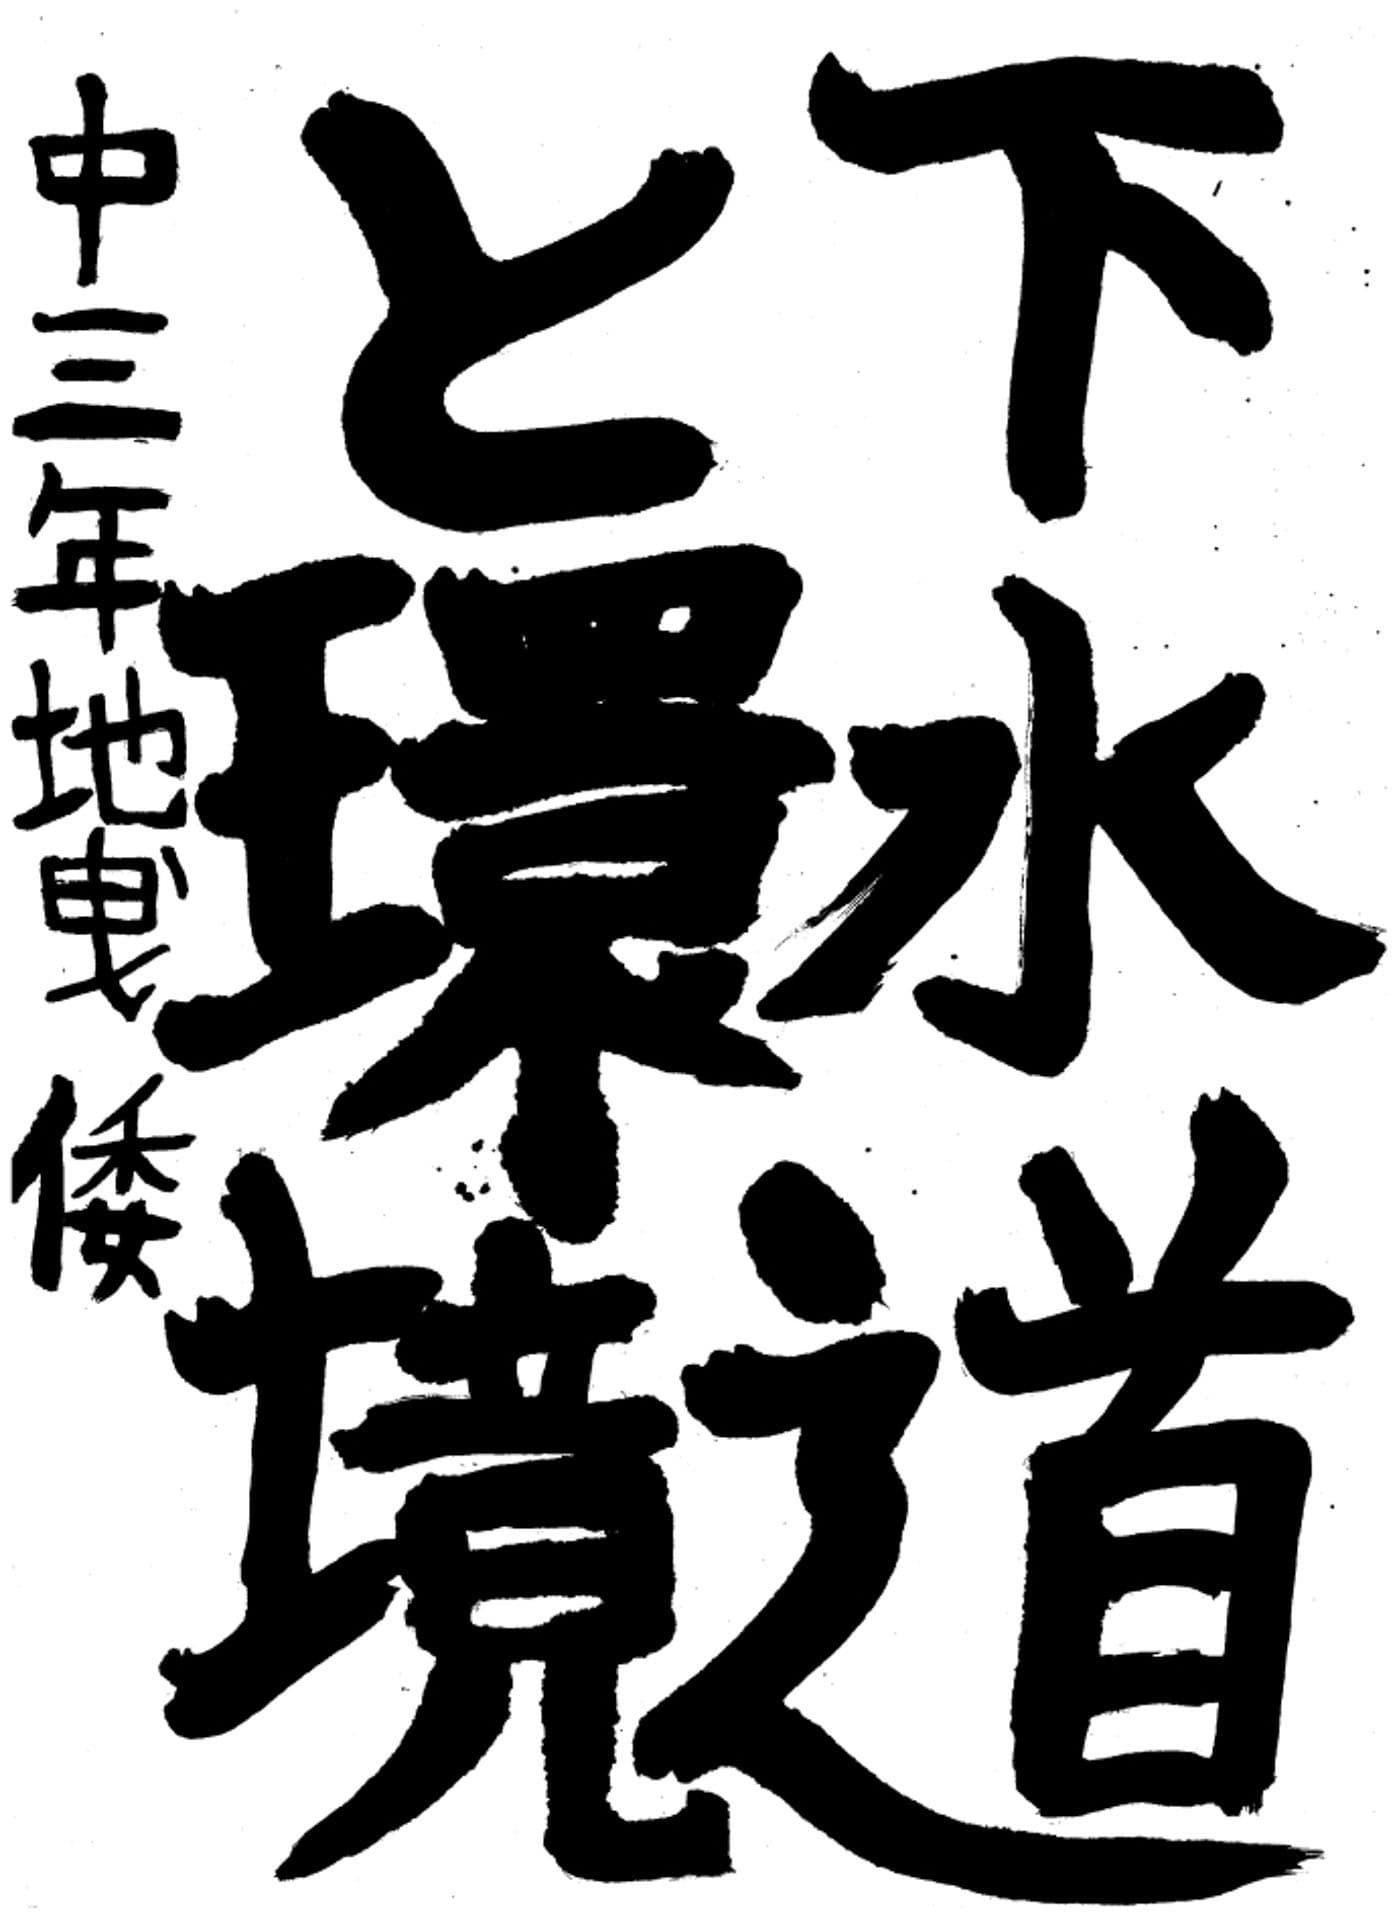 下水道
と環境
中三年地曳倭